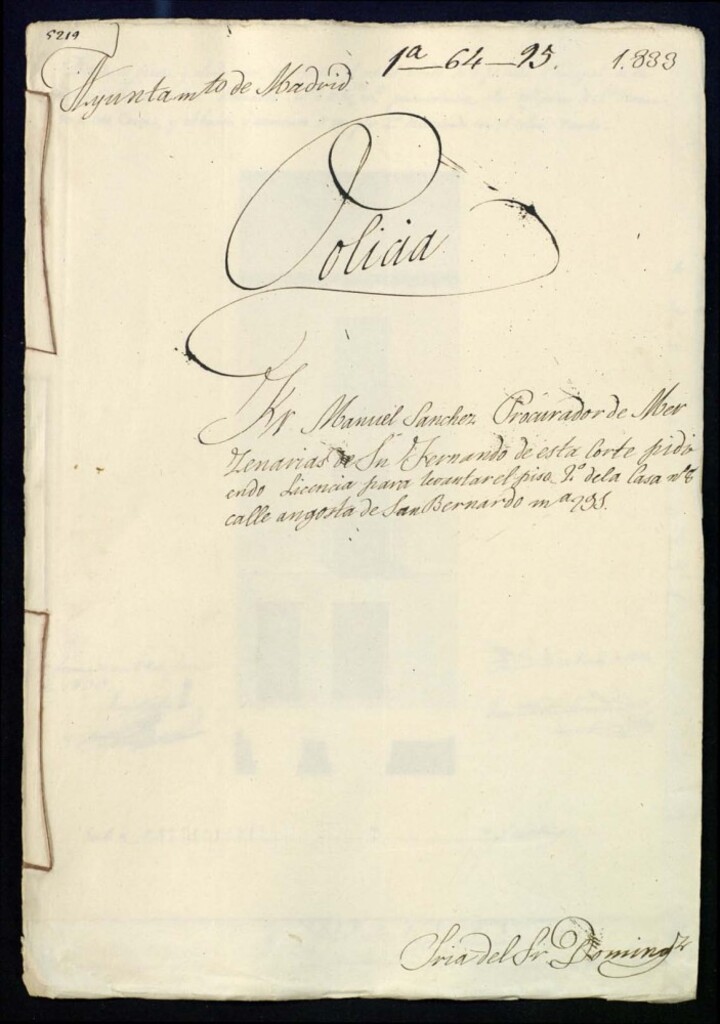 5219
1ª-64-95. 1.833
Ayuntamto de Madrid
Policia
Fr Manuel Sanchez Procurador de Mer
zenarias de Sn Fernando de esta Corte pidi
endo Licencia para levantar el piso 2º dela Casa nº 8
calle angosta de San Bernardo mª 295.
Sria del Sr. Domingz